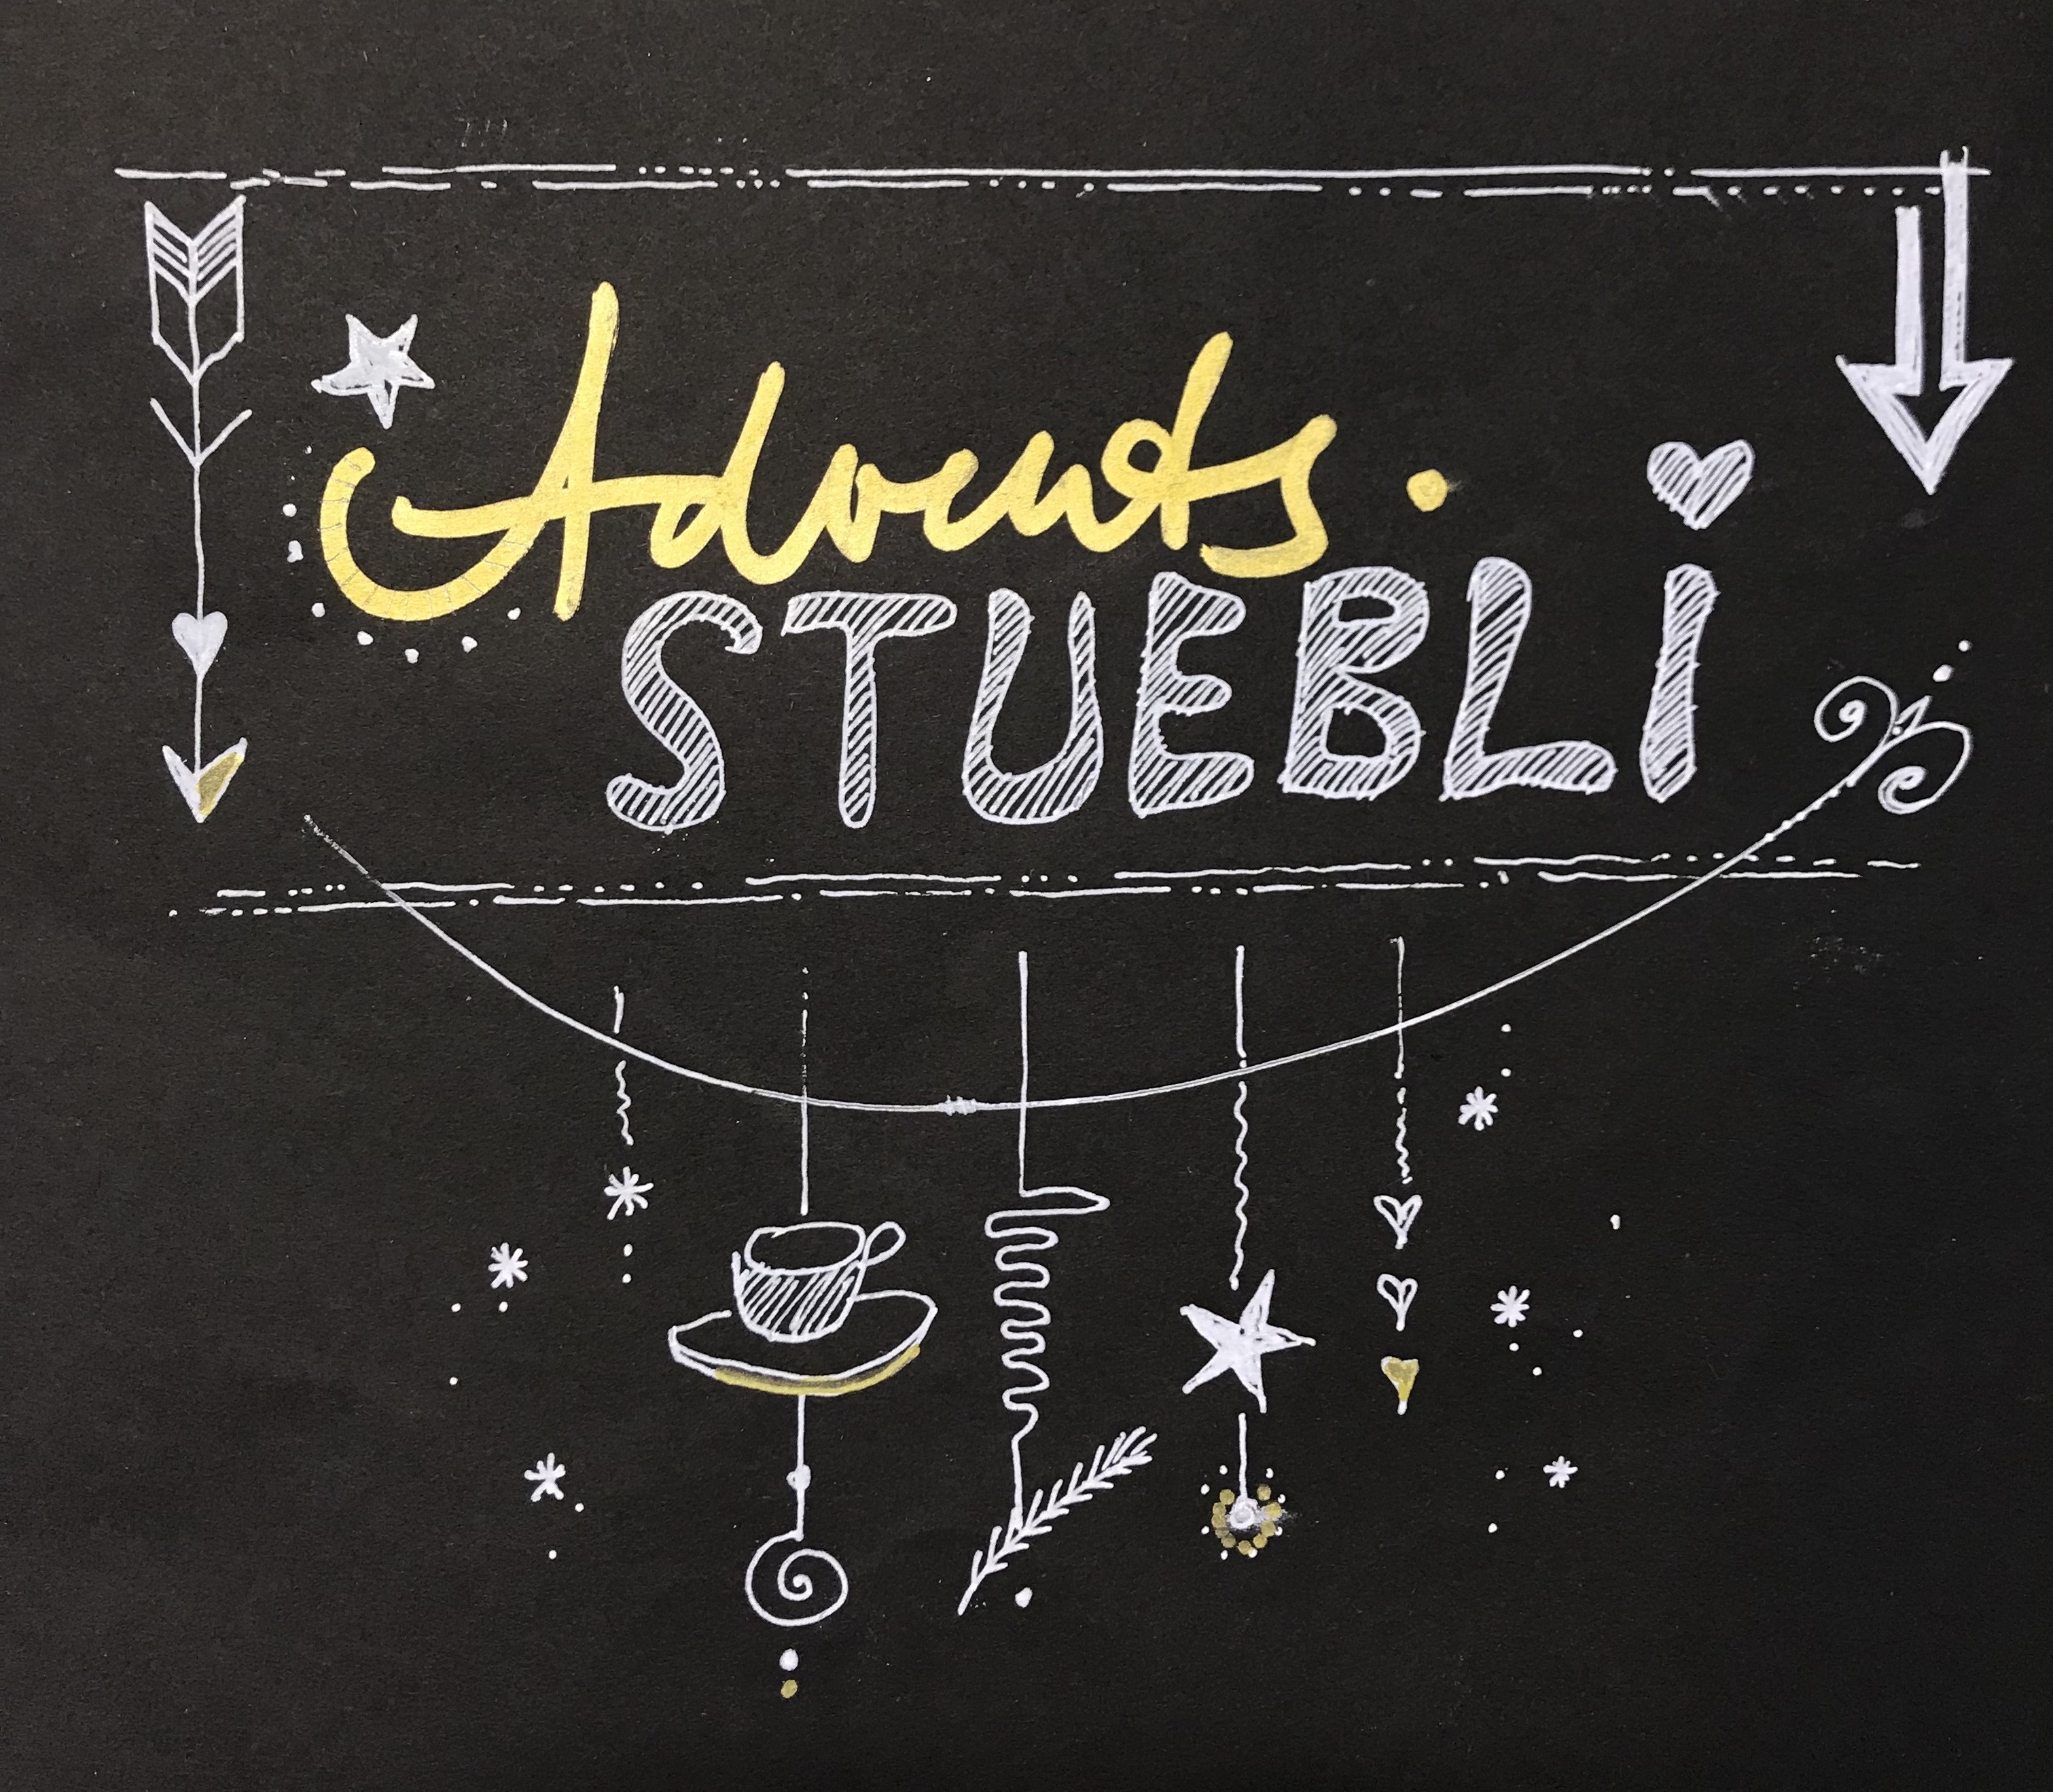 Advents.
STUEBLI